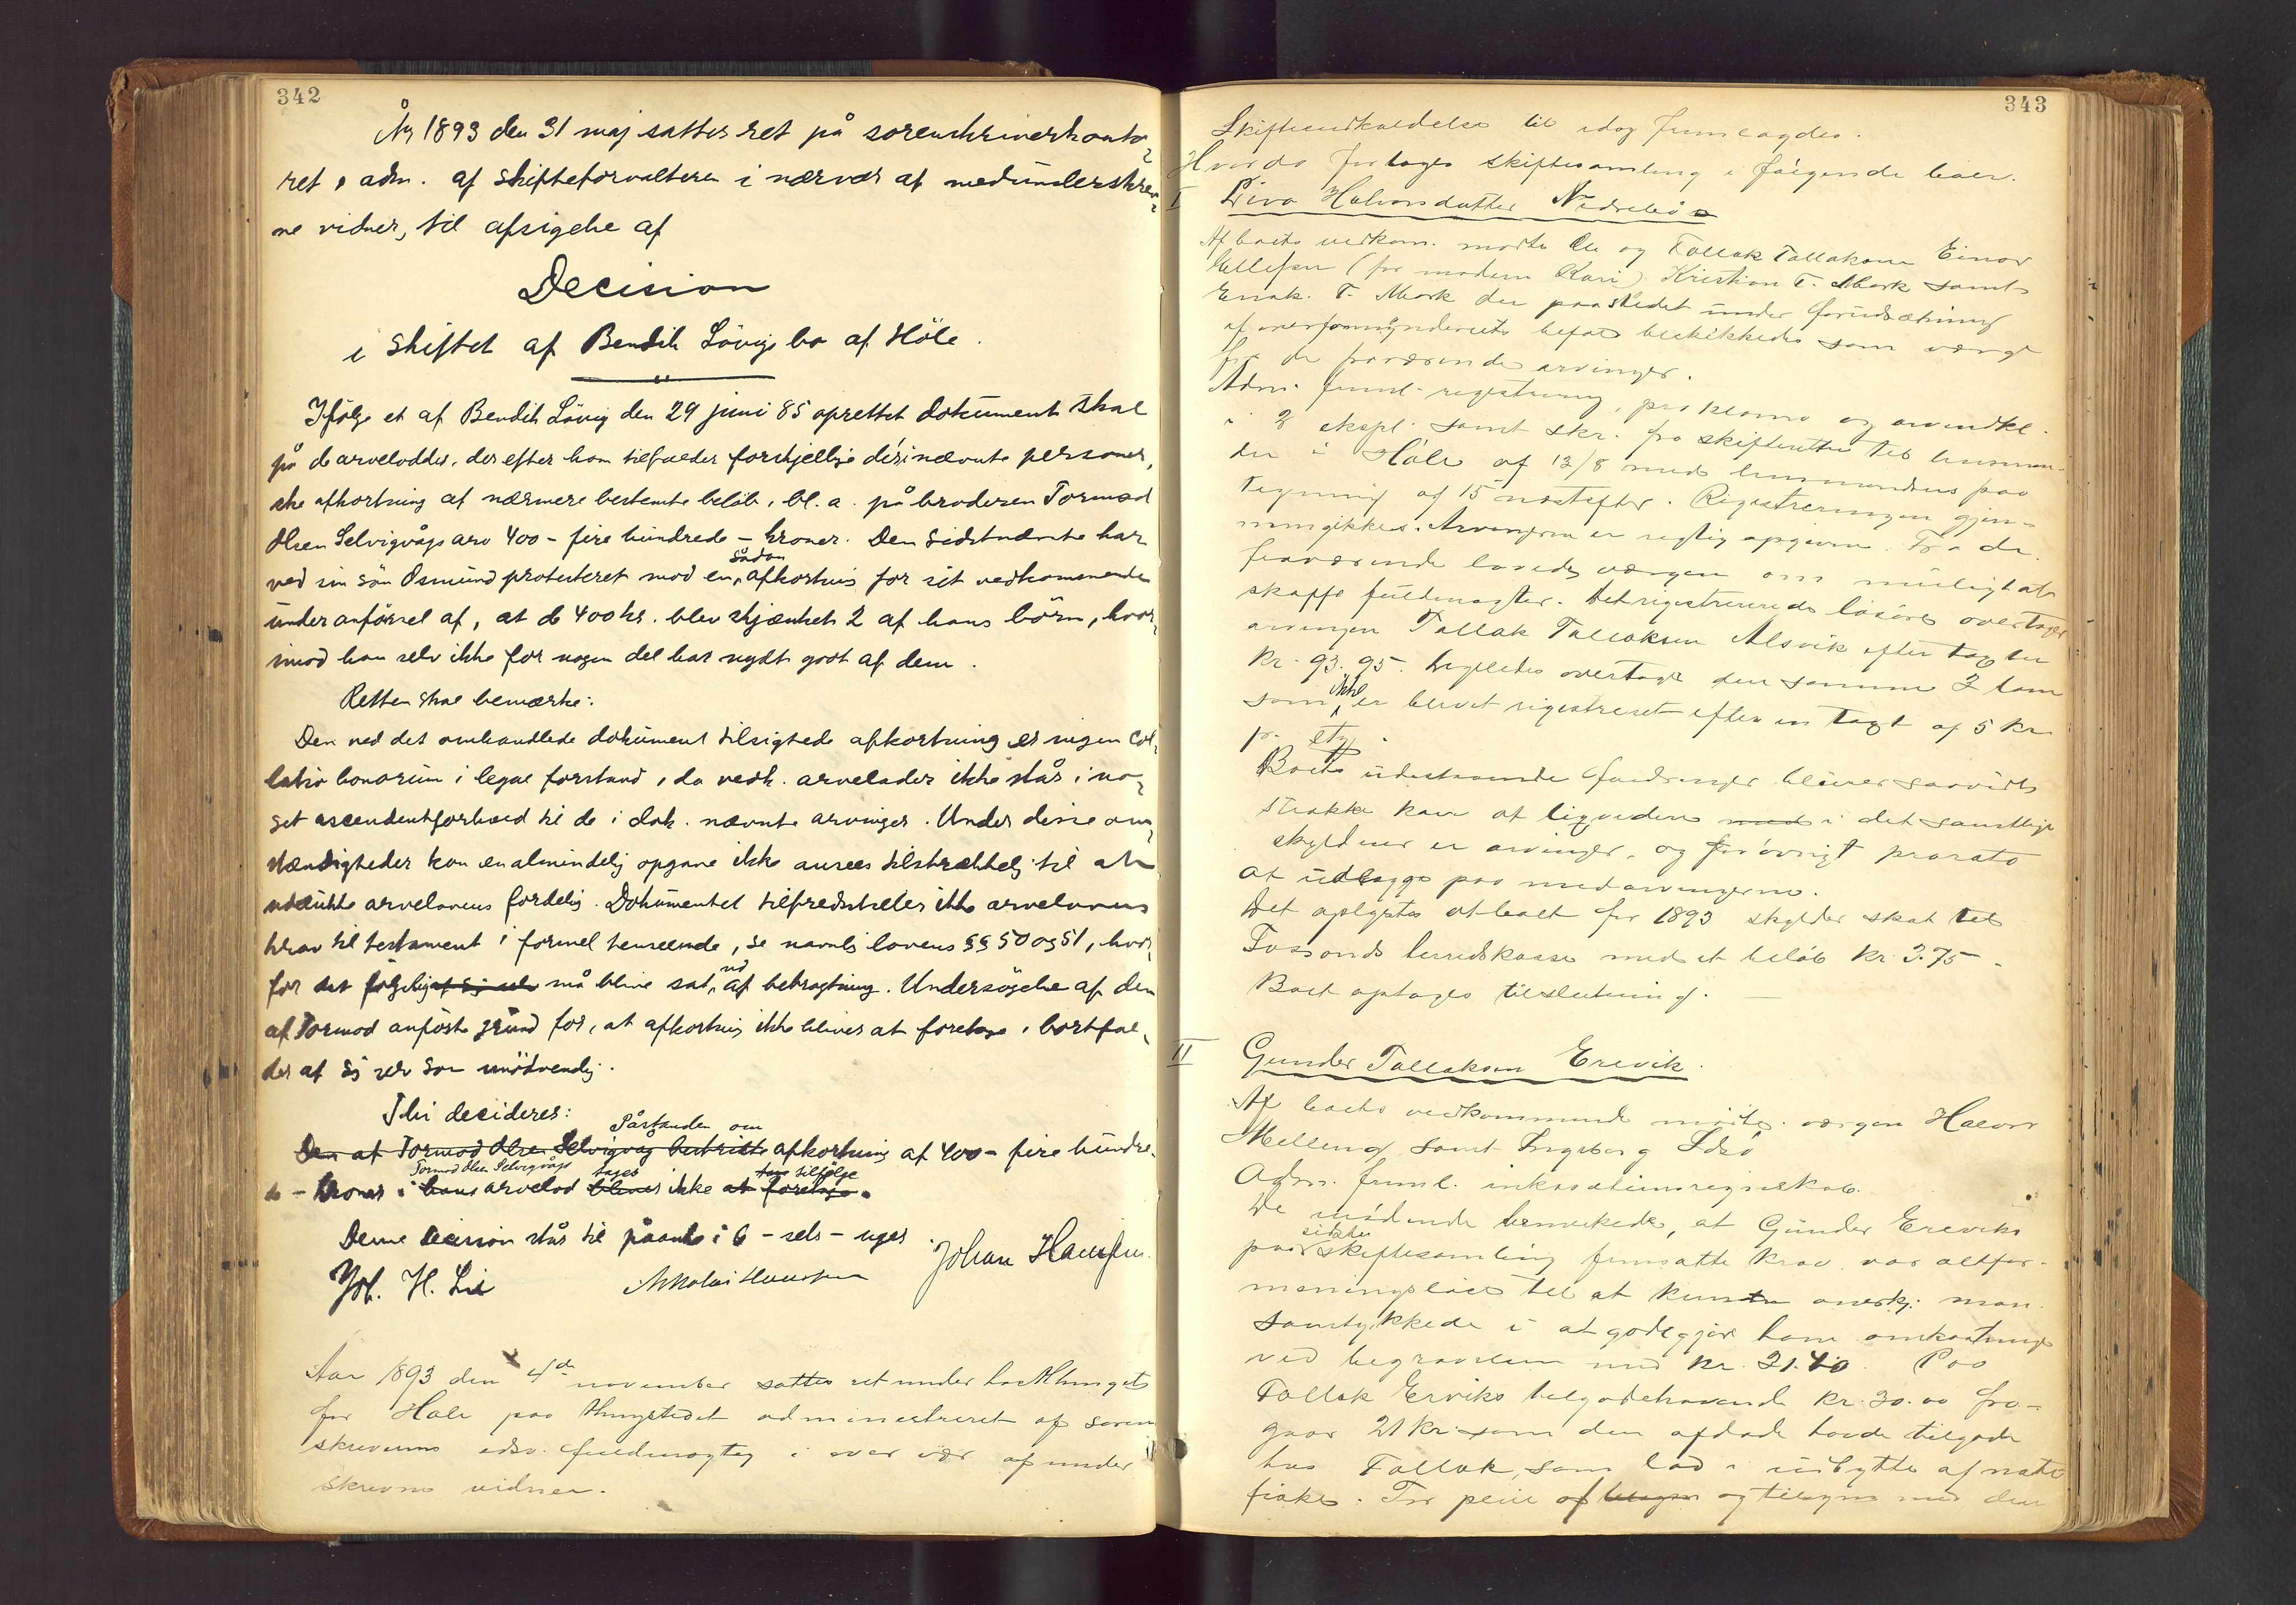 342
År 1893 den 31 maj sattes ret på sorenskriverkonto-
ret, adm. af skifteforvalteren i nærvær af medunderskrev-
ne vidner, til afsigelse af
Decision
i skiftet af Bendik Lövigs bo af Höle.
Ifölge et af Bendik Lövig den 29 juni 85 oprettet dokument skal
på de arvelodder, der efter ham tilfalder forskjellige deri nævnte personer,
ske afkortning af nærmere bestemte belöb, bl. a. på broderen Tormod
Olsen Selvigvågs arv 400 - fire hundrede - kroner. Den sidstnævnte har
ved sin sön Osmund protesteret mod en sådan afkortning for sit vedkommende
under anförsel af, at de 400 kr. blev skjænket 2 af hans börn, hvor-
imod han selv ikke for nogen del har nydt godt af dem.
Retten skal bemærke:
Den ved det omhandlede dokument tilsigtede afkortning er ingen col-
latio bonorum i legal forstand, da vedk. arvelader ikke står i no-
get ascendentforhold til de i dok. nævnte arvinger. Under disse om-
stændigheder kan en almindelig opgave ikke ansees tilstrækkelig til at
udelukke arvelovens fordeling. Dokumentet tilfredsstiller ikke arvelovens
krav til testament i formel henseende, se navnlig lovens §§ 50 og 51, hvor-
for det fölgelig af sig selv må blive sat ud af betragtning. Undersögelse af den
af Tormod anförte grund for, at afkortning ikke bliver at foretage, bortfal-
der af sig selv som unödvendig.
Thi decideres:
Påstanden om
Den af Tormod Olsen Selvigvåg bestridte afkortning af 400 - fire hundre-
Tormod Olsen Selvigvågs tages tilfölge
de - kroner i hans arvelod bliver ikke at foretage.
Denne decision står til påanke i 6 - seks - uger.
Joh. H. Lie Nikolai Hansen Johan Hansen
Aar 1893 den 4de november sattes ret under
for Hole paa thingstedet administreret af soren
skriverens edsv. fuldmægtig i overvær af under
skrevne vidner.
343
Skifteindkaldelse til idag fremlagdes.
Hvorda foretoges skiftesamling i fölgende boer.
I Siva Halvorsdatter Nedrebö
Af boets vedkom. mödte Ole og Tollak Tollaksen Einar
Ellefsen (for moderen Kari) Kristian T. Mark samt
Enok. T. Mark der paastedet under forudsætning
af overformynderiets beskikkedes som værge
for de fraværende arvinger.
Adm. freml. registrering, proklama og arveindkl.
i 2 ekspl. samt skr. fra skifteretten til lensman-
den i Höle af 12/8 med lensmandens paa
tegning af 15 næstefter. Registreringen gjen-
nemgikkes. Arvingerne er rigtig opgivne. Fra de
fraværende lovede værgen om muligt at
skaffe fuldmagter. Det registrerede lösöre overtager
arvingen Tollak Tollaksen Alsvik efter taxten
Kr. 93.95. Ligeledes overtager den samme 2 lam
som ikke er blevet registreret efter en taxt af 5 kr
pr. stk.
Boets udestaaende fordringer bliver saavidt
strække kan at liqvidere med i det samtlige
skyldnere er arvinger, og forövrigt prorata
at udlægge paa medarvingerne.
Det oplystes at boet for 1893 skylder skat til
Fossands herredskasse med et belöb kr. 3.75.
Boet optages til slutning.
II Gunder Tollaksen Erevik.
Af boets vedkommende mödte værgen Halvor
Melleng samt Ingeborg Idsö
Adm. freml. inkassationsregnskab.
De mödende bemerkede, at Gunder Ereviks
paa sidste skiftesamling fremsatte krav var altfor
meningslöst til at kunde anerkj. man
samtykkede i at godtgjöre ham omkostninger
ved begravelsen med kr. 21.40. Paa
Tollak Erviks tilgodehavende kr. 30.00 fra-
gaar 21 kr som den afdöde havde tilgode
hos Tollak, som lod i udbytte af
fiske. For og tilsyn med den